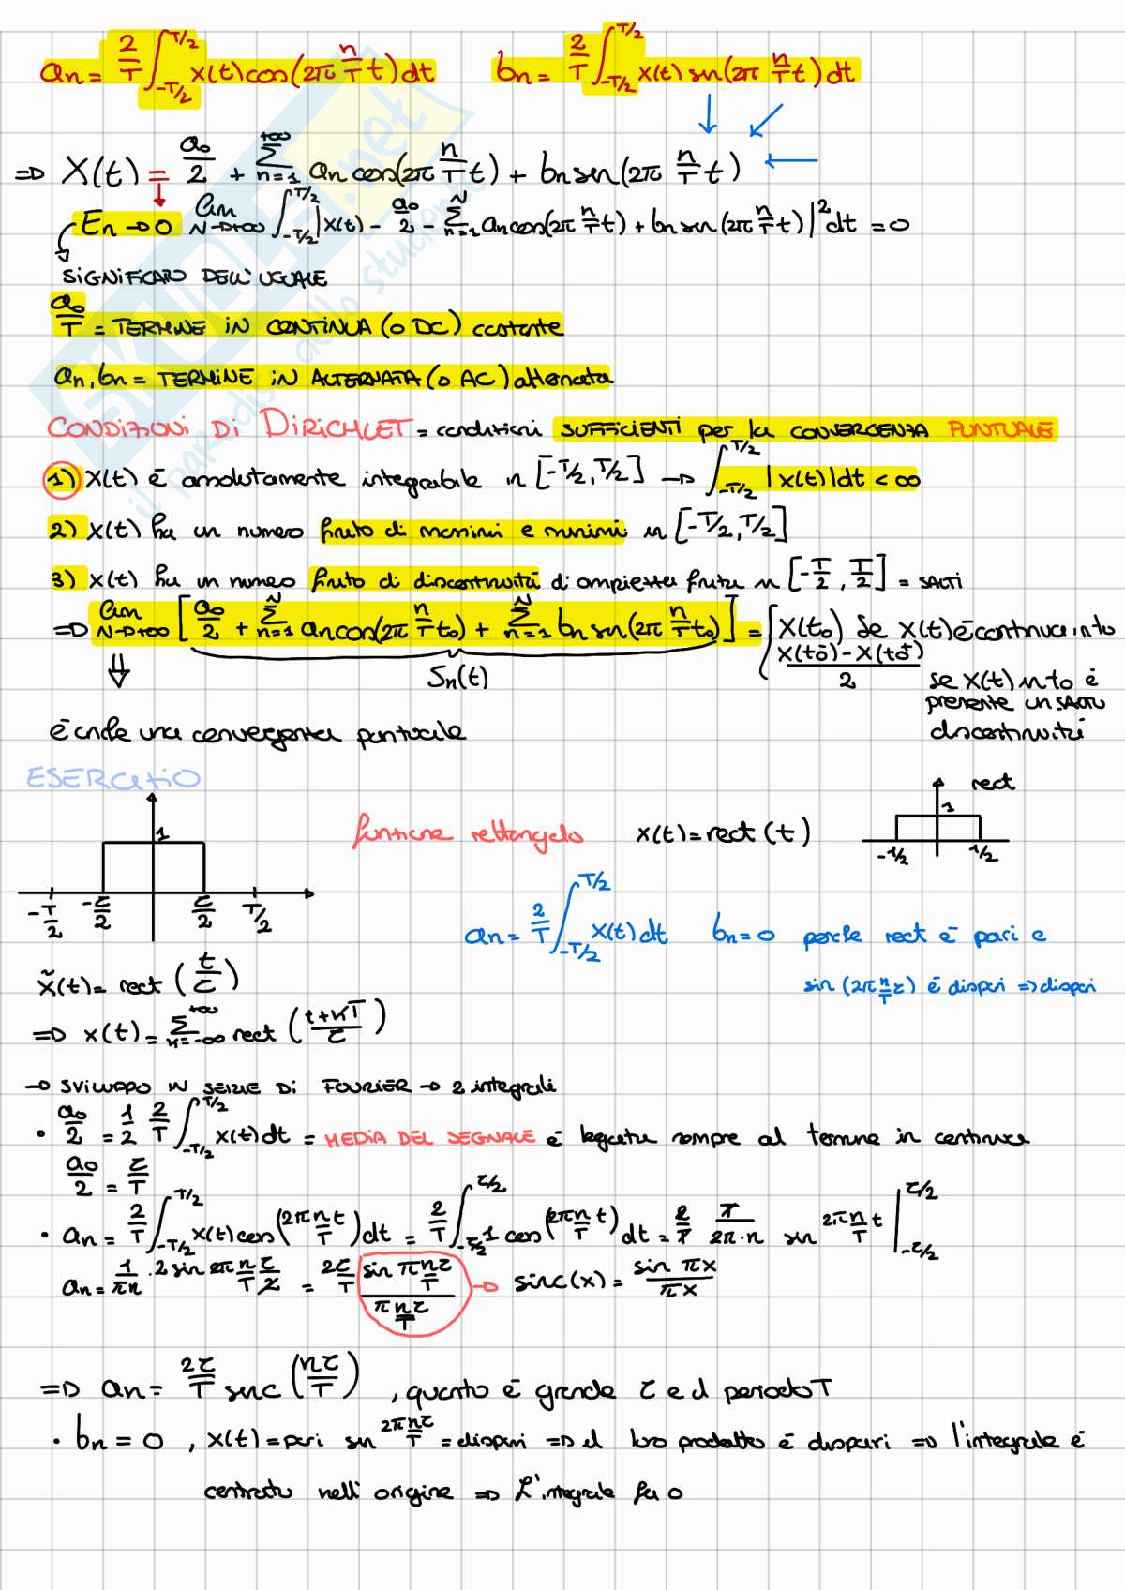 an = 2/T ∫_{-T/2}^{T/2} x(t) cos(2π n/T t) dt   bn = 2/T ∫_{-T/2}^{T/2} x(t) sin(2π n/T t) dt
=> X(t) = a0/2 + Σ_{n=1}^{+∞} an cos(2π n/T t) + bn sin(2π n/T t)
En → 0 lim_{N→+∞} ∫_{-T/2}^{T/2} |x(t) - a0/2 - Σ_{n=1}^{N} an cos(2π n/T t) + bn sin(2π n/T t)|² dt = 0
SIGNIFICATO DELL'UGUALE
a0/T = TERMINE IN CONTINUA (o DC) costante
an, bn = TERMINE IN ALTERNATA (o AC) alternata
CONDIZIONI DI DIRICHLET = condizioni SUFFICIENTI per la CONVERGENZA PUNTUALE
1) X(t) è assolutamente integrabile in [-T/2, T/2] → ∫_{-T/2}^{T/2} |x(t)| dt < ∞
2) X(t) ha un numero finito di massimi e minimi in [-T/2, T/2]
3) X(t) ha un numero finito di discontinuità di ampiezza finita in [-T/2, T/2] = SALTI
=> lim_{N→+∞} [a0/2 + Σ_{n=1}^{N} an cos(2π n/T t0) + Σ_{n=1}^{N} bn sin(2π n/T t0)] = { X(t0) se X(t) è continua in t0
X(t0⁻) - X(t0⁺) / 2 se X(t) in t0 è
presente un SALTO
discontinuità
Sn(t)
⇓
è anche una convergenza puntuale
ESERCIZIO
1
-T/2 -τ/2 τ/2 T/2
funzione rettangolo x(t) = rect(t)
rect
1
-1/2 1/2
an = 2/T ∫_{-T/2}^{T/2} x(t) dt bn = 0 perché rect è pari e
sin(2π n/T τ) è dispari => dispari
x̃(t) = rect(t/τ)
=> x(t) = Σ_{n=-∞}^{+∞} rect((t+nT)/τ)
→ SVILUPPO IN SERIE DI FOURIER → 2 integrali
• a0/2 = 1/2 2/T ∫_{-T/2}^{T/2} x(t) dt = MEDIA DEL SEGNALE è legata sempre al termine in continua
a0/2 = τ/T
• an = 2/T ∫_{-T/2}^{T/2} x(t) cos(2πnt/T) dt = 2/T ∫_{-τ/2}^{τ/2} 1 cos(2πn/T t) dt = 2/T T/(2π·n) sin 2πn/T t |_{-τ/2}^{τ/2}
an = 1/πn · 2 sin 2π n/T τ/2 = 2τ/T (sin π nτ/T)/(π nτ/T) → sinc(x) = sin πx / πx
=> an = 2τ/T sinc(nτ/T) , quanto è grande τ e il periodo T
• bn = 0 , x(t) = pari sin 2πnτ/T = dispari => il loro prodotto è dispari => l'integrale è
centrato nell'origine => L'integrale fa 0
il paradiso dello studente
SKUOLA.net